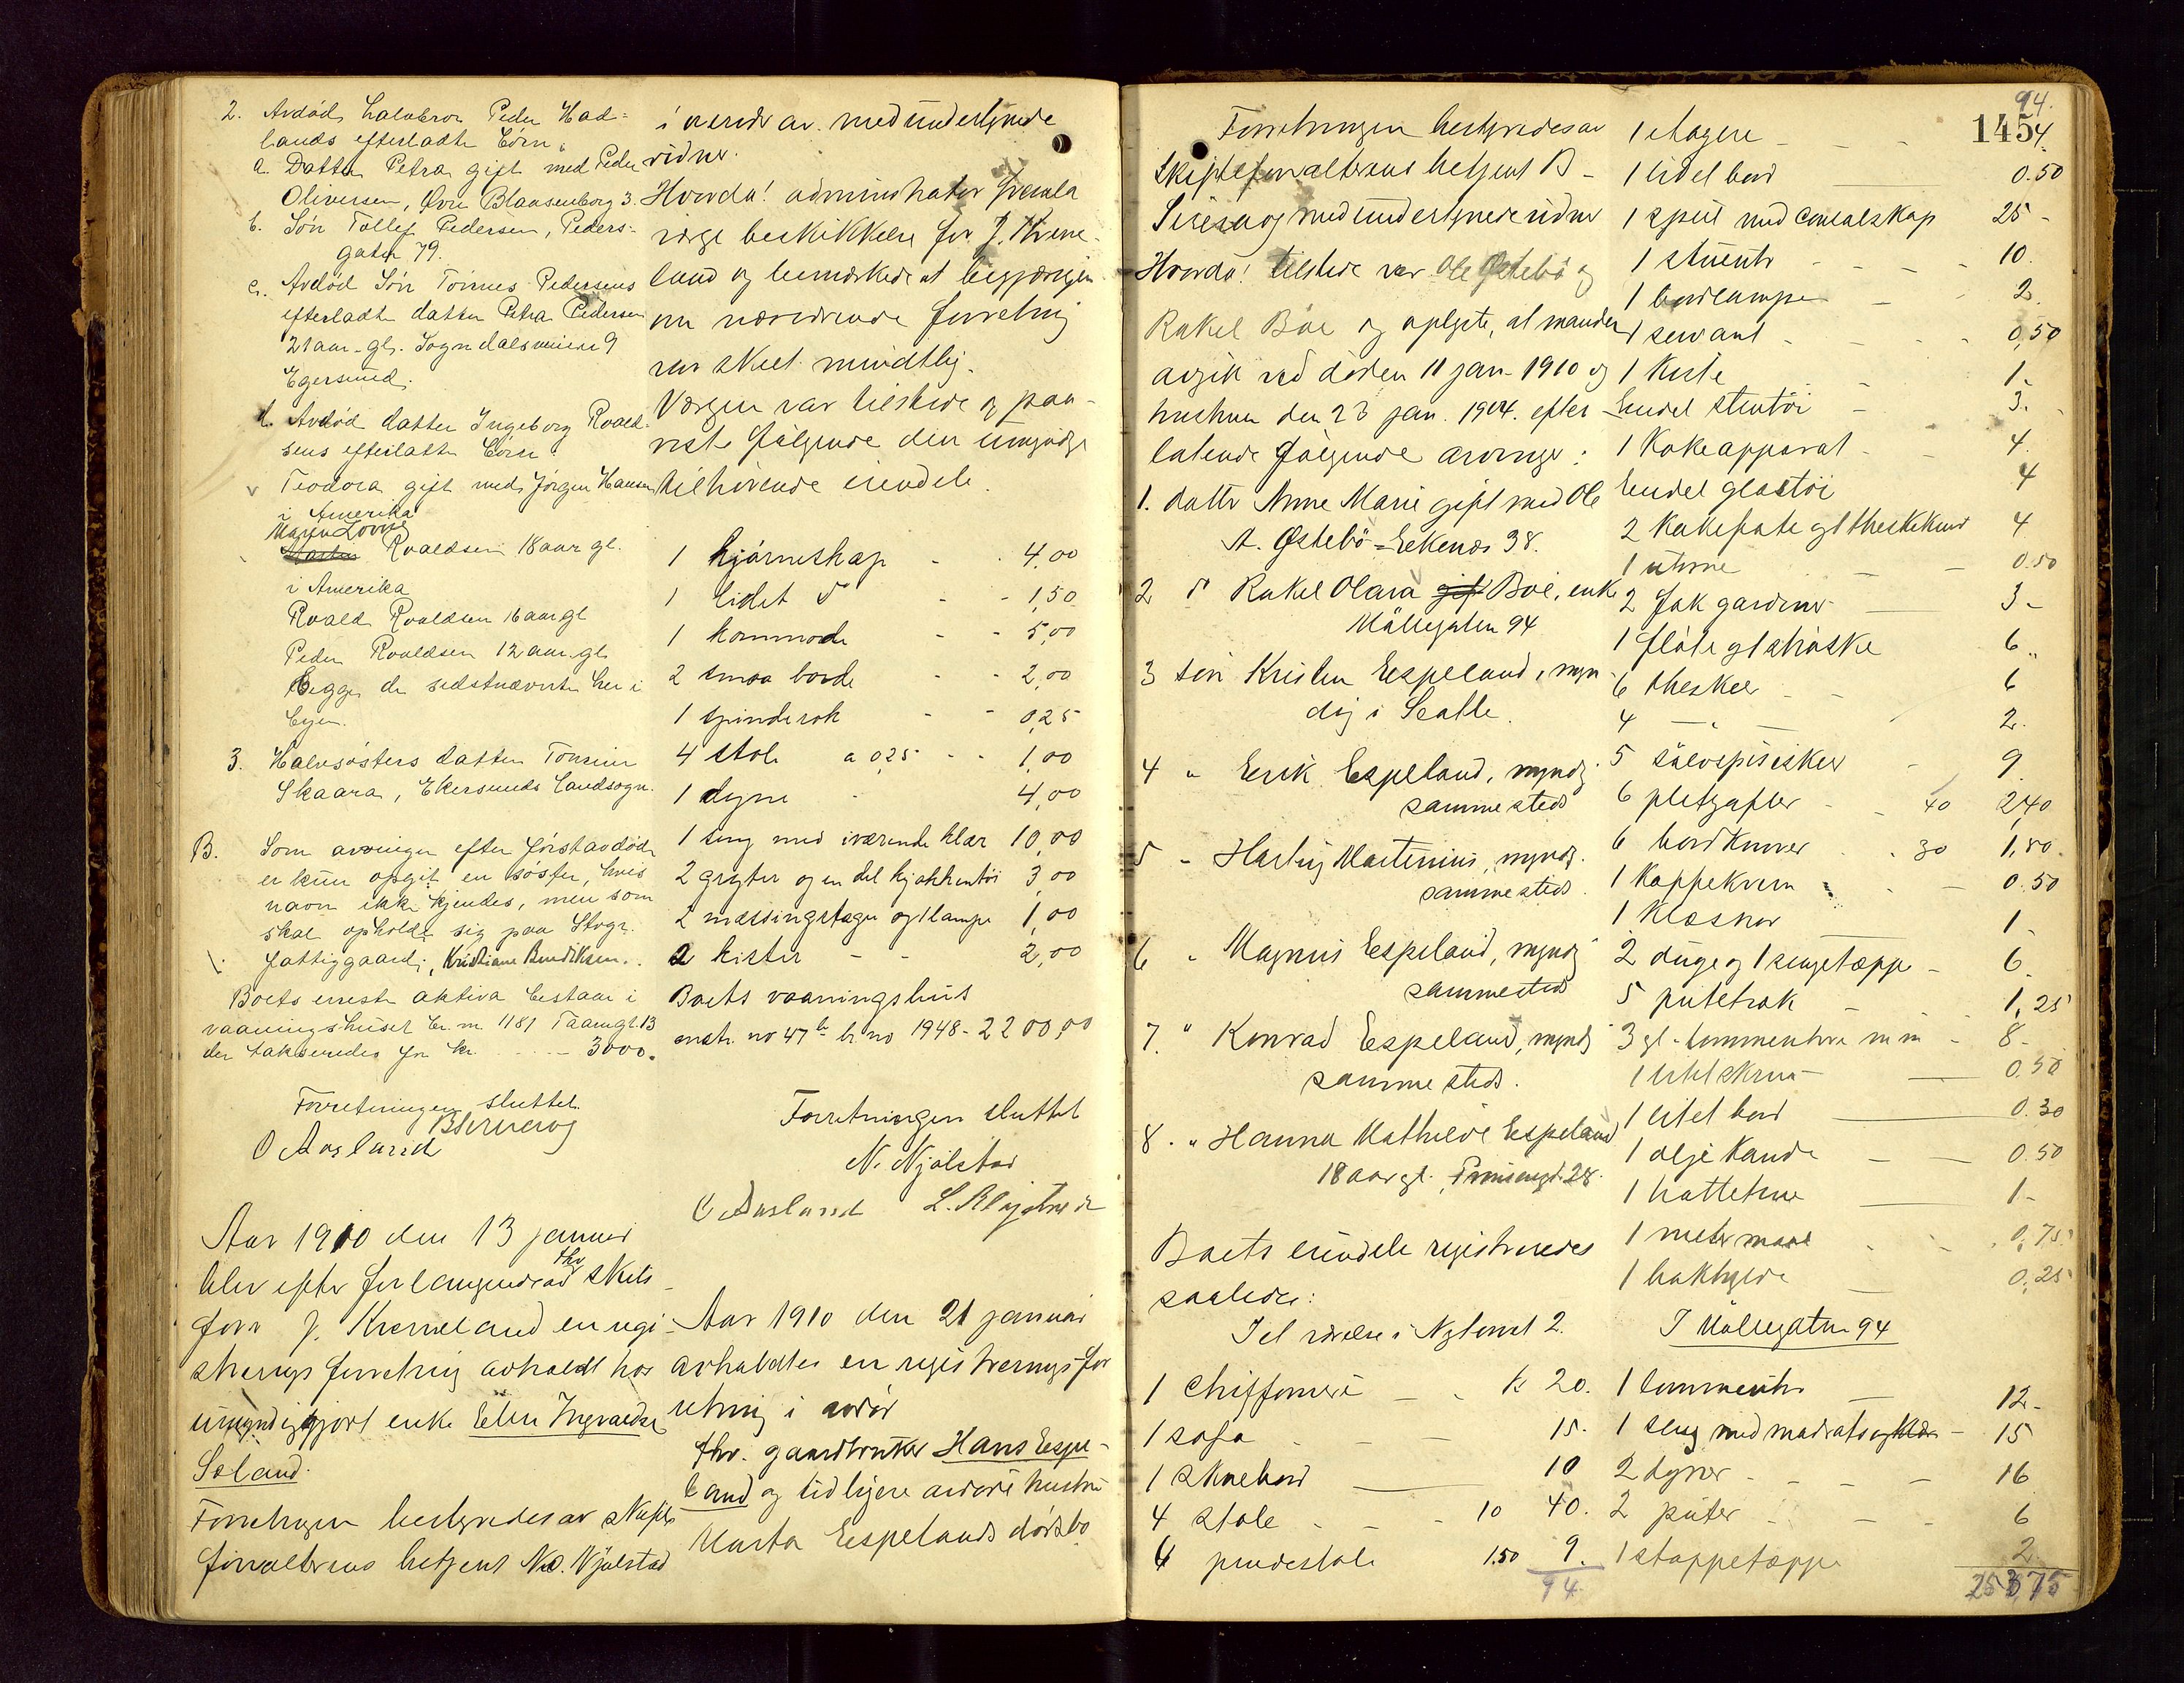 2. Avdød halvbror Peder Had-
lands efterladte børn:
a. Datter Petra gift med Peder
Oliversen, Øvre Blaasenborg 3.
b. Søn Tollef Pedersen, Peders-
gaten 79.
c. Avdød Søn Tønnes Pedersens
efterladte datter Petra Pedersen
21 aar gl. Sogndalsveien 9
Egersund.
d. Avdød datter Ingeborg Roald-
sens efterladte børn:
Teodora gift med Jørgen Hansen
i Amerika
Roaldsen 18 aar gl.
i Amerika
Roald Roaldsen 16 aar gl
Peder Roaldsen 12 aar gl.
Begge de sidstnævnte her i
byen.
3. Halvsøsters datter Tomine
Skaara, Ekersunds landsogn.
B. Som arvinger efter førstavdøde
er kun opgit en søster, hvis
navn ikke kjendes, men som
skal opholde sig paa Stvgr.
fattiggaard; Kristiane Bendiksen.
Boets eneste aktiva bestaar i
vaaningshuset br. nr. 1181 Taarngt. 13
der takseredes for kr. - - - - 3000.
Forretningen sluttet.
O Aasland
Aar 1910 den 13 januar
blev efter forlangende av fhv skips
fører J. Kverneland en regi-
strerings forretning avholdt hos
umyndiggjort enke Elen Ingvaldsen
Søland.
Forretningen bestyredes av skifte
forvalterens betjent N. Njølstad
i overvær av medundertegnede
vidner.
Hvorda! administrator fremla
verge beskikkelse for J. Kverne-
land og bemerkede at begjæringen
om nærværende forretning
var skeet mundtlig.
Vergen var tilstede og paa-
viste følgende den umyndige
tilhørende eiendele.
1 hjørneskap - - 4,00
1 lidet d° - - 1,50
1 kommode - - 5,00
2 smaa borde - - 2,00
1 spinderok - - 0,25
4 stole a 0,25 - - 1,00
1 dyne - 4,00
1 seng med iværende klær 10,00
2 gryter og en del kjøkkentøi 3,00
2 messingstager og 1 lampe 1,00
2 kister - - 2,00
Boets vaaningshus
matr. no 47 b br no 1948 - 2200,00
Forretningen sluttet
N. Njølstad
O Aasland
Aar 1910 den 21 januar
avholdtes en registrerings for
retning i avdøde
fhv. gaardbruker Hans Espe-
land og tidligere avdøde hustru
Marta Espelands dødsbo.
94.
145
Forretningen bestyredes av
Skifteforvalterens betjent B
og medundertegnede vidner
Hvorda! tilstede var Ole Østebø og
Rakel Bøe og oplyste, at manden
avgik ved døden 11 jan. 1910 og
hustruen den 23 jan. 1904. efter-
latende følgende arvinger:
1. datter Anne Marie gift med Ole
A. Østebø - Eekenæs 38.
2 d° Rakel Olava Bøe, enke
Møllegaten 94
3 søn Kristen Espeland, myn-
dig i Seatle.
4 " Eerik Espeland, myndig
sammesteds
5 " Hartvig Martinius, myndig
sammesteds.
6 " Magnus Espeland, myndig
sammesteds
7. " Konrad Espeland, myndig
sammesteds.
8. " Hanna Mathilde Espeland
18 aar gl.
Boets eiendele registreredes
saaledes:
I et værelse i Nytorvet 2.
1 chiffoniere - - k 20.
1 sofa - - - 15.
1 skrivebord 10
4 stole - - - 10 40.
6 pindestole 1.50 9.
94.
1 etagere - - - 4.
1 lidet bord 0.50
1 speil med consolskap 25 -
1 stueuhr - - - 10.
1 bordlampe - - 2.
1 servant - - - 0,50
1 kiste - 1.
Endel stentøi - 3.
1 kokeapparat - - 4.
Endel glastøi 4
2 kakefate 4
0.50
2 fak gardiner 3 -
1 fløte 6 "
6 theskeer - - 6
4 — " — 2.
5 sølvspiseskeer - 9.
6 pletgafler - - 40 2,40
6 bordkniver - - 30 1,80.
1 kaffekvern - - 0.50
1 klæsnor 1
2 duge og 1 sengetæppe - 6.
5 putetræk - 1,25
3 gl. lommeuhre m m - 8 -
1 litet skrin 0.50
1 litet bord 0.30
1 olje kande - - 0.50
1 hattetine 1 -
1 meter maal - - 0,75
1 bokhylde 0.25
I Møllegaten 94
1 lommeuhr 12 -
1 seng med madrats og klær - 15
2 dyner - - - - 16
2 puter - - - - 6
1 stoppetæppe 2